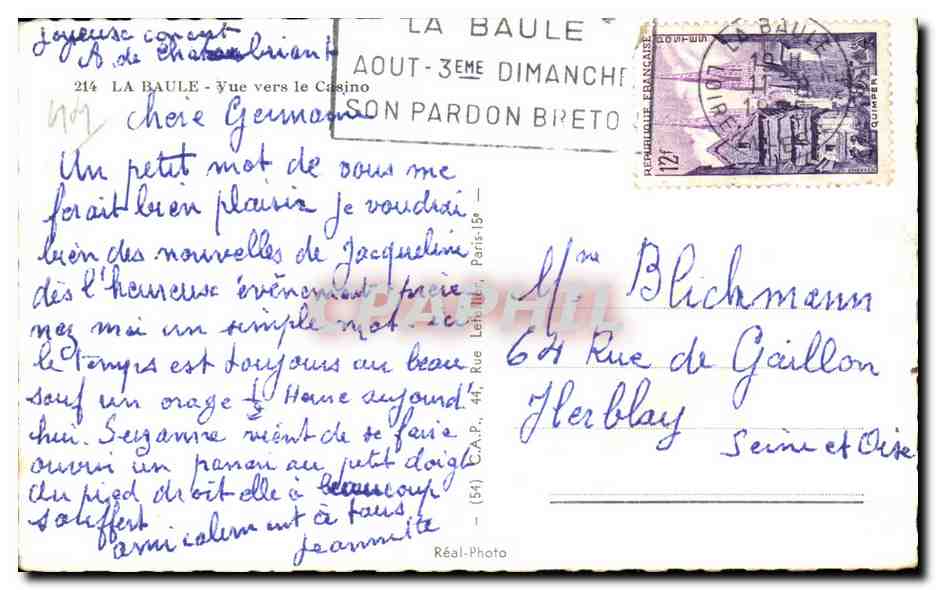 joyeuse
A. de Chateaubriant
214 LA BAULE - Vue vers le Casino
chère Germaine
Un petit mot de vous me
ferait bien plaisir je voudrai
bien des nouvelles de Jacqueline
dès l'heureux évènement préve
nez moi un simple mot.
le temps est toujours au beau
sauf un orage ½ Heure aujourd'
hui. Suzanne vient de se faire
ouvrir un panari au petit doigt
du pied droit elle à beaucoup
souffert
amicalement à tous
Jeannette
LA BAULE
AOUT - 3EME DIMANCHE
SON PARDON BRETO
LA BAULE
REPUBLIQUE FRANÇAISE
POSTES
12f
QUIMPER
Mme Blichmann
64 Rue de Gaillon
Herblay
Seine et Oise
— (54) C.A.P., 44, Rue Letellier, Paris-15e —
Réal-Photo
CPAPHIL